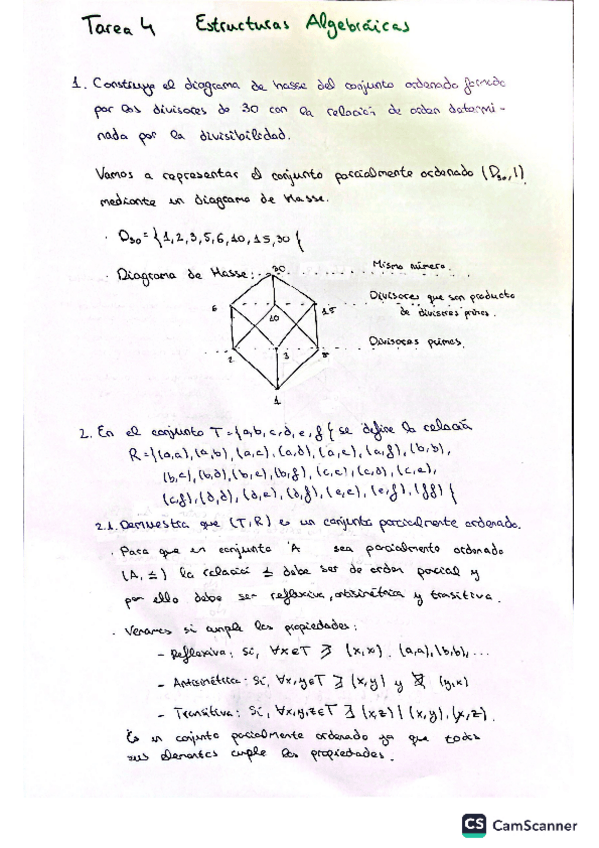 Tarea 4 Estructuras Algebráicas
1. Construye el diagrama de hasse del conjunto ordenado formado
por los divisores de 30 con la relación de orden determi-
nada por la divisibilidad.
Vamos a representar el conjunto parcialmente ordenado (D30, |)
mediante un diagrama de Hasse.
· D30 = {1,2,3,5,6,10,15,30{
· Diagrama de Hasse:
30
Mismo número.
6
10
15
Divisores que son producto
de divisores primos.
2
3
5
Divisores primos.
1
2. En el conjunto T = {a,b,c,d,e,f{ se define la relación
R = {(a,a), (a,b), (a,c), (a,d), (a,e), (a,f), (b,b),
(b,c), (b,d), (b,e), (b,f), (c,c), (c,d), (c,e),
(c,f), (d,d), (d,e), (d,f), (e,e), (e,f), (f,f) {
2.1. Demuestra que (T,R) es un conjunto parcialmente ordenado.
· Para que un conjunto A sea parcialmente ordenado
(A, ≤) la relación ≤ debe ser de orden parcial y
por ello debe ser reflexiva, antisimétrica y transitiva.
· Veamos si cumple las propiedades:
- Reflexiva: Sí, ∀x∈T ∃ (x,x). (a,a), (b,b), ...
- Antisimétrica: Sí, ∀x,y∈T ∃ (x,y) y ∄ (y,x)
- Transitiva: Sí, ∀x,y,z∈T ∃ (x,z) | (x,y), (x,z).
Es un conjunto parcialmente ordenado ya que todos
sus elementos cumple las propiedades.
CS CamScanner